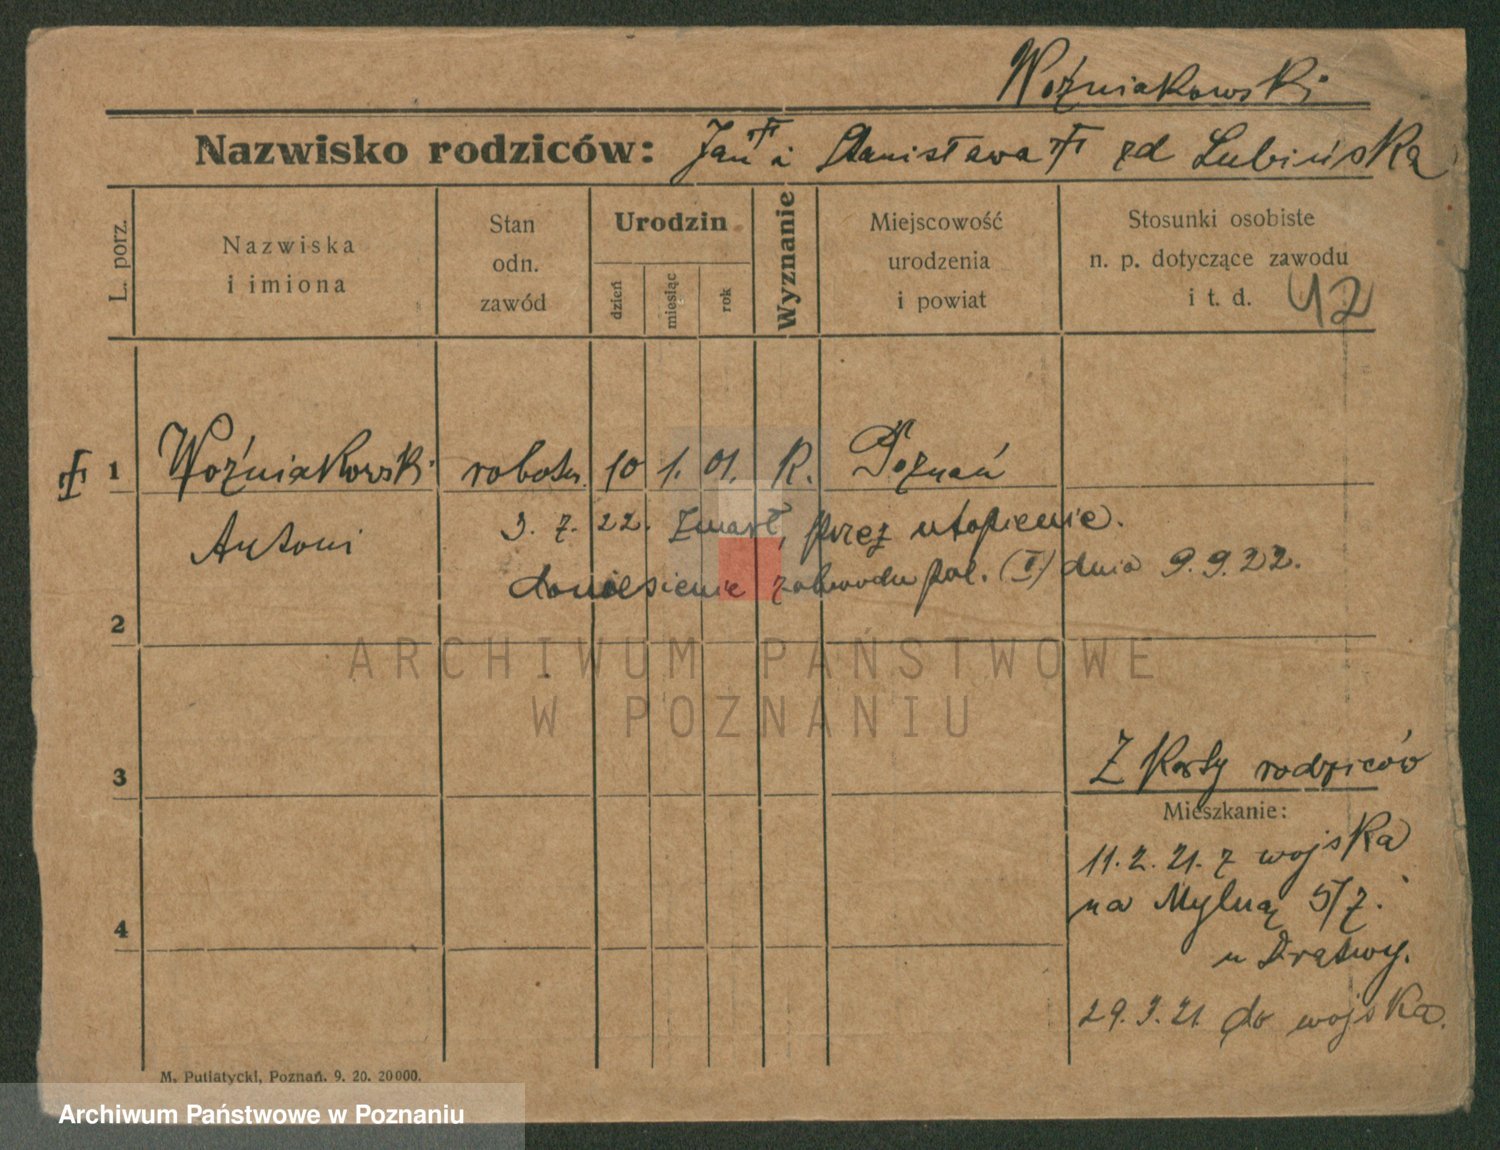 Woźniakowski
Nazwisko rodziców: Jan i Stanisława zd Lubińska
L. porz.
Nazwiska
i imiona
Stan
odn.
zawód
Urodzin
dzień
miesiąc
rok
Wyznanie
Miejscowość
urodzenia
i powiat
Stosunki osobiste
n. p. dotyczące zawodu
i t. d.
42
1 Woźniakowski robotn. 10 1. 01. R. Poznań
Antoni
3. 7. 22. zmarł, przez utopienie.
doniesienie obwodu pol. (I.) dnia 9.9.22.
2
3
Z Karty rodziców
Mieszkanie:
11.2.21. z wojska
na Mylną 5/7.
u Dratwy.
29.3.21 do wojska.
4
M. Putiatycki, Poznań. 9. 20. 20000.
ARCHIWUM PAŃSTWOWE
W POZNANIU
Archiwum Państwowe w Poznaniu